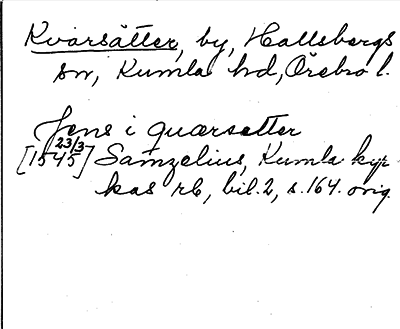 Kvarsätter, by, Hallsbergs
sn, Kumla hd, Örebro l.
Jens i quærsetter
[1545 23/3] Samzelius, Kumla kyr
kas rb, bil. 2, s. 164. orig.